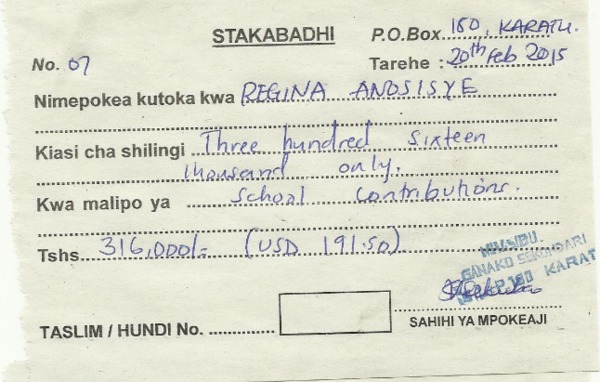 STAKABADHI P.O.Box 160, KARATU.
No. 07 Tarehe : 20th Feb 2015
Nimepokea kutoka kwa REGINA ANDSISYE
Kiasi cha shilingi Three hundred sixteen
thousand only.
Kwa malipo ya School Contributions.
Tshs 316,000/- (USD 191.50)
GANAKO SEKONDARI
160 KARAT
TASLIM / HUNDI No.
SAHIHI YA MPOKEAJI